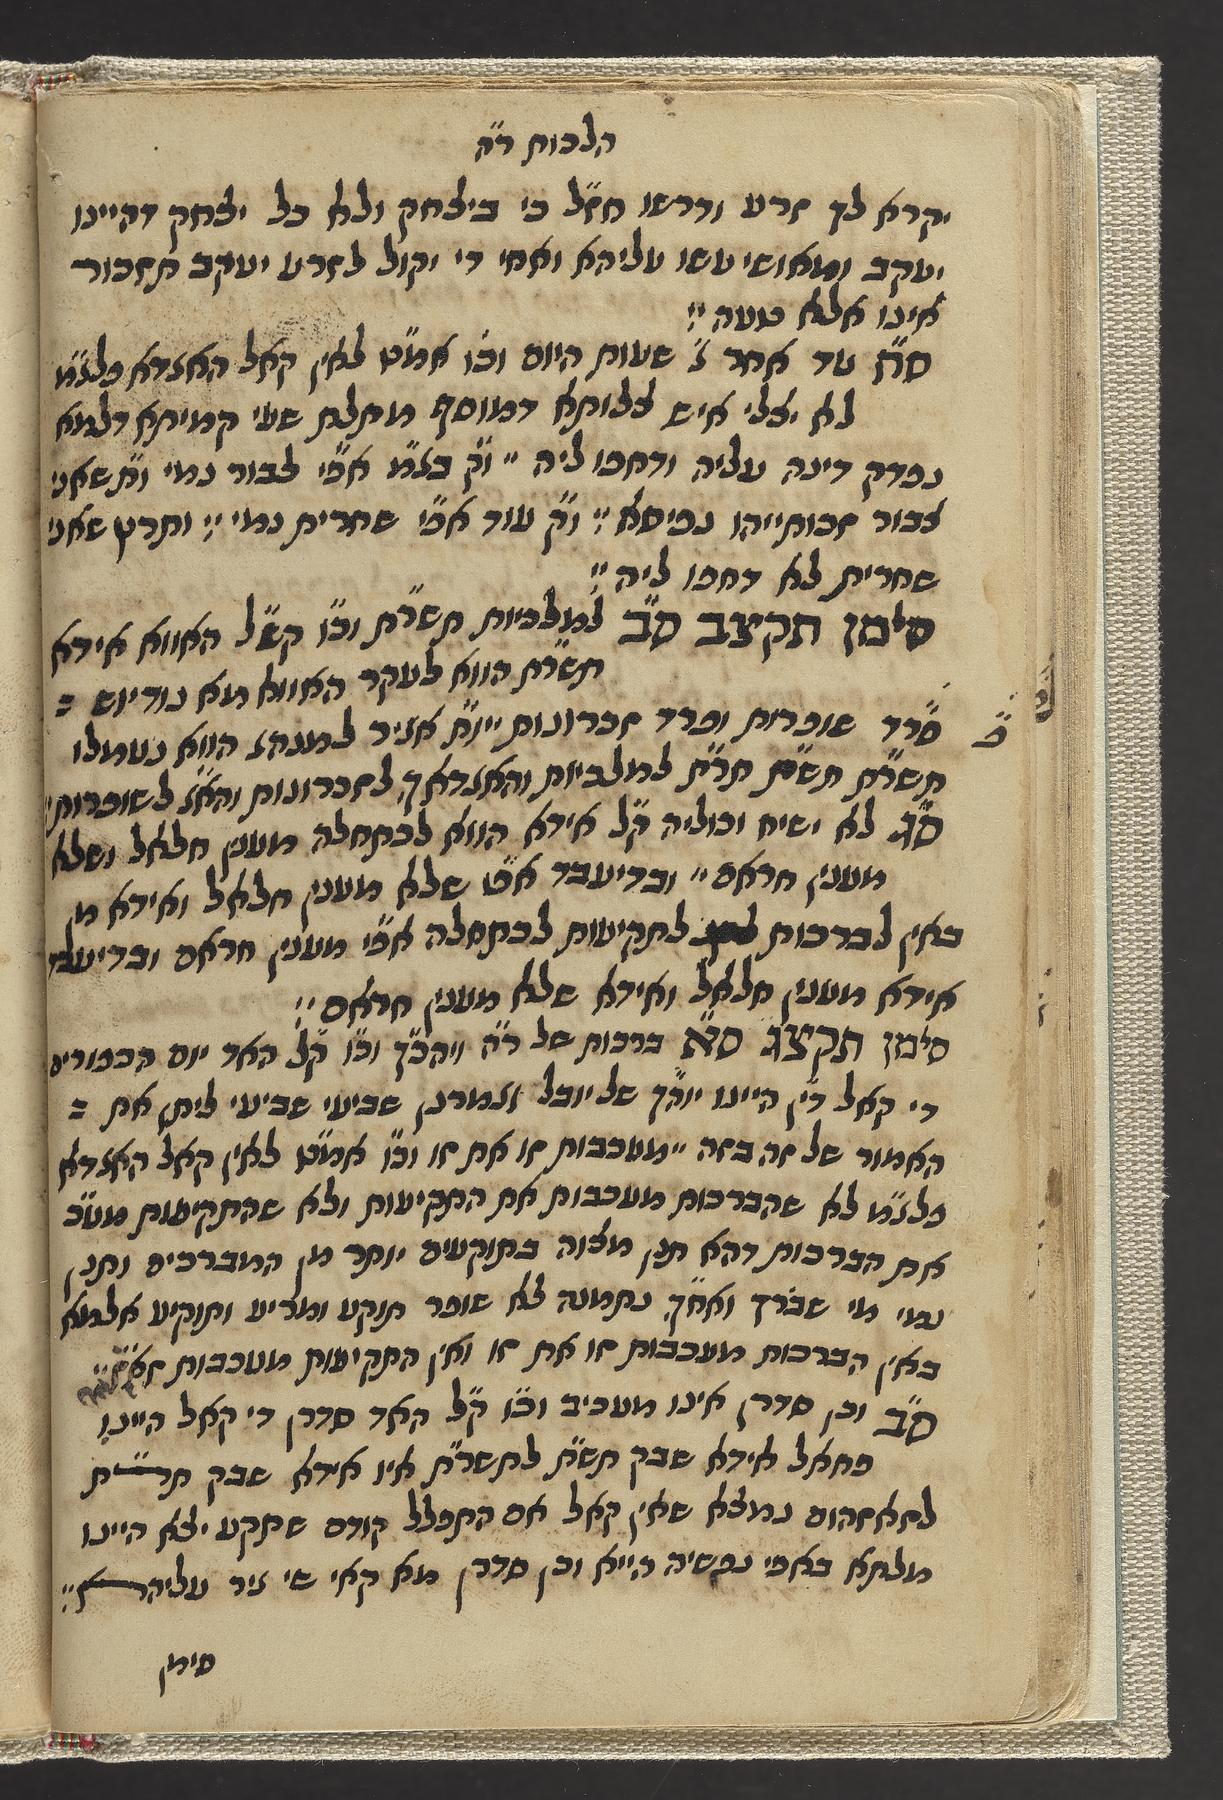 הלכות ר״ה
יקרא לך זרע ודרשו חז״ל כי ביצחק ולא כל יצחק דהיינו
יעקב ומאושי עשו עליהא ואחי די יקול לזרע יעקב תזכור
אינו אלא טעה
ס״ח עד אחר ג׳ שעות היום וכו׳ אמ״ט לאין קאל האגדא פלג״מ
לא יצלי איש צלותא דמוסף מתלת שעי קמייתא דלמא
נפדק דינה עליה ודחפו ליה ״ וק׳ בגמ׳ אפי׳ צבור נמי ות״ שאני
צבור זכותייהו נפישא וק׳ עוד אפי׳ שחרית נמי ותרץ שאני
שחרית לא דחפו ליה
סימן תקצב ס״ב למלכיות תשר״ת וכו׳ קש״ל האווא אידא
תשר״ת הווא לעקר האווא מא נודיוש =
סרד שופרות ופרד זכרונות ייות אגיר למנהג הווא נעמלו
תשר״ת תש״ת תר״ת למלכיות והאגדאך לזכרונות והאג׳ לשופרות
ס״ג לא ישיח וכוליה ק״ל אידא הווא לכתחלה מענין חלאל ושלא
מענין חראם ״ ובדיעבד א״ט שלא מענין חלאל ואידא מן
באין לברכות לתקיעות לכתחלה אפי׳ מענין חראם ובדיעבד
אידא מענין חלאל ואידא שלא מענין חראם
סימן תקצג ס״א ברכות של ר״ה ויהכ״ך וכו׳ ק״ל האד יום הכפורים
די קאל ד״ין היינו יוה״ך של יובל וגמרנן שביעי שביעי לית, את =
האמור של זה בזה ״ מעכבות זו את זו וכו׳ אמ״ט לאין קאל האגדא
פלג״מ לא שהברכות מעכבות את התקיעות ולא שהתקיעות מעכ׳
את הברכות דהא תנן מצוה בתוקעים יותר מן המברכים ותנן
נמי מי שברך ואח״ך נתמנה לא שופר תוקע ומריע ותוקיע אלמא
באין הברכות מעכבות זו את זו ואין התקיעות מעכבות
ס״ב וכן סדרן אינו מעכיב וכו׳ ק״ל האד סדרן די קאל היינו
פחאל אידא שבק תש״ת לתשר״ת איו אידא שבק תר״ת
לאזהום נמצא שאין קאל אם התפלל קודם שתקע יצא היינו
מלתא באפי נפשיה הייא וכן סדרן מא קאי שי גיר עליהא
סימן